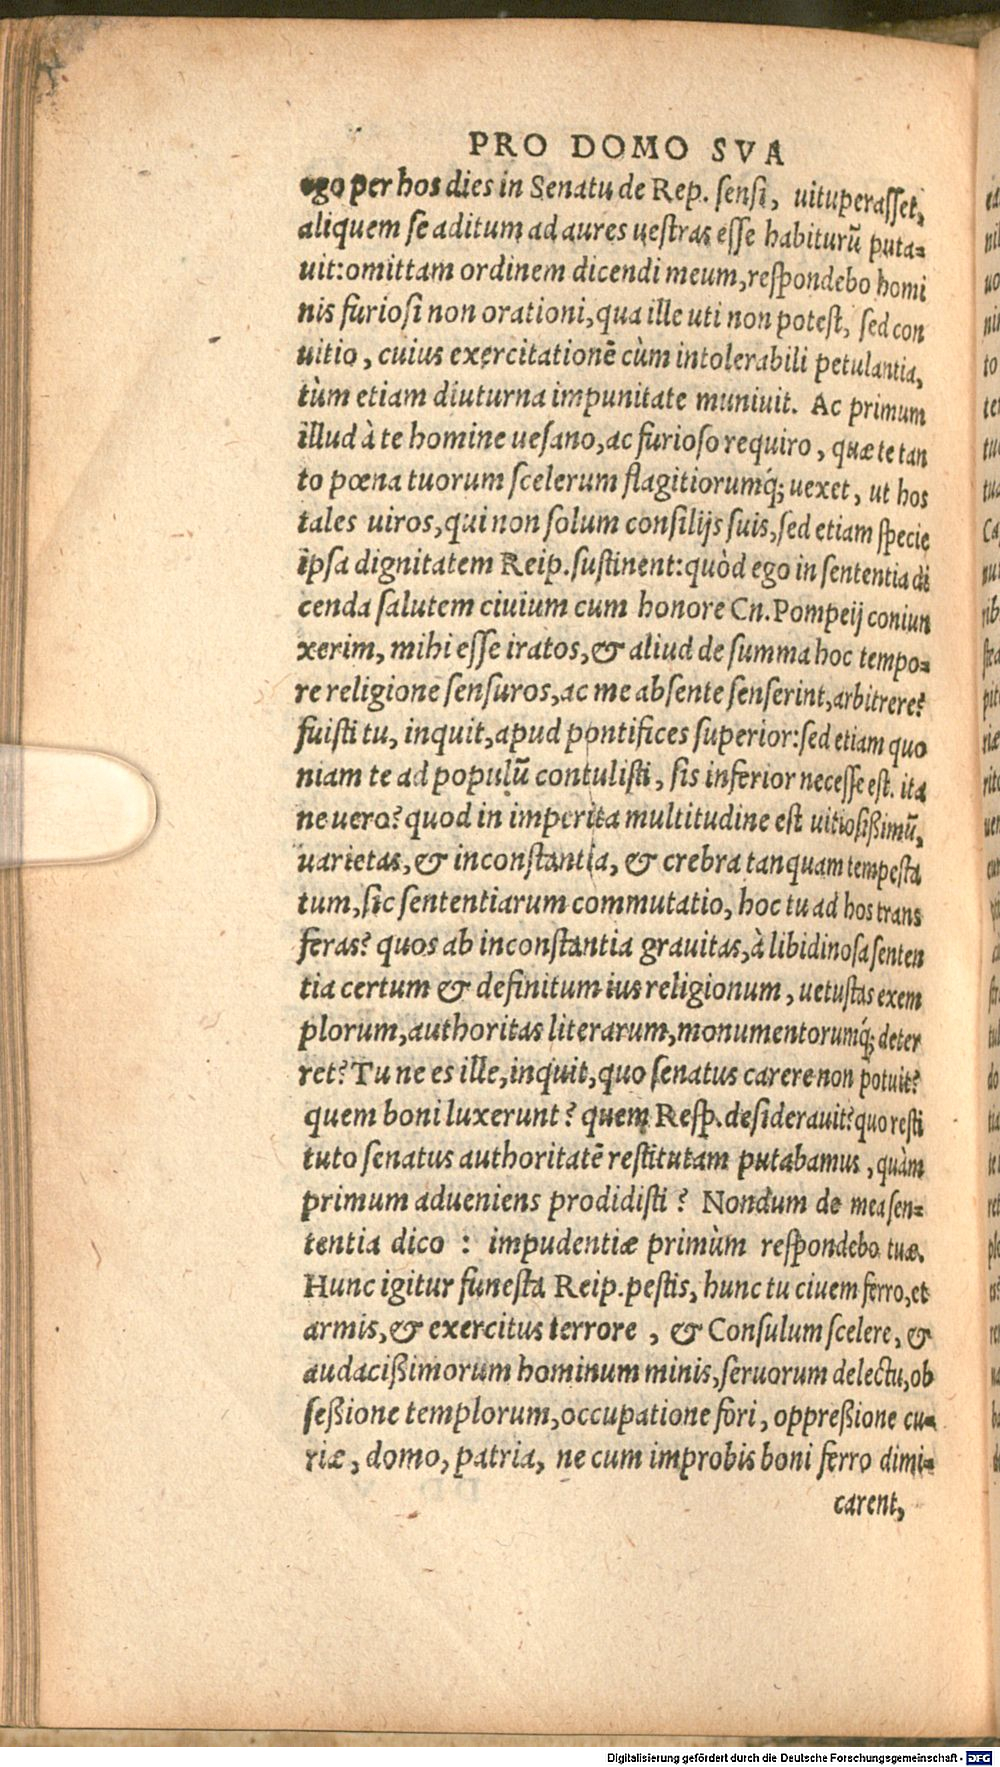 PRO DOMO SVA
ego per hos dies in Senatu de Rep. sensi, uituperasset,
aliquem se aditum ad aures uestras esse habiturū puta-
uit: omittam ordinem dicendi meum, respondebo homi
nis furiosi non orationi, qua ille uti non potest, sed con
uitio, cuius exercitationē cùm intolerabili petulantia,
tùm etiam diuturna impunitate muniuit. Ac primum
illud à te homine uesano, ac furioso requiro, quæ te tan
to pœna tuorum scelerum flagitiorumq́; uexet, ut hos
tales uiros, qui non solum consilijs suis, sed etiam specie
ipsa dignitatem Reip. sustinent: quòd ego in sententia di
cenda salutem ciuium cum honore Cn. Pompeij coniun
xerim, mihi esse iratos, & aliud de summa hoc tempo-
re religione sensuros, ac me absente senserint, arbitrere?
fuisti tu, inquit, apud pontifices superior: sed etiam quo
niam te ad populū contulisti, sis inferior necesse est. ita
ne uero? quod in imperita multitudine est uitiosißimū,
uarietas, & inconstantia, & crebra tanquam tempesta
tum, sic sententiarum commutatio, hoc tu ad hos trans
feras? quos ab inconstantia grauitas, à libidinosa senten
tia certum & definitum ius religionum, uetustas exem
plorum, authoritas literarum, monumentorumq́; deter
ret? Tu ne es ille, inquit, quo senatus carere non potuit?
quem boni luxerunt? quem Resp. desiderauit? quo resti
tuto senatus authoritatē restitutam putabamus, quàm
primum adueniens prodidisti? Nondum de mea sen-
tentia dico : impudentiæ primùm respondebo tuæ.
Hunc igitur funesta Reip. pestis, hunc tu ciuem ferro, et
armis, & exercitus terrore, & Consulum scelere, &
audacißimorum hominum minis, seruorum delectu, ob
seßione templorum, occupatione fori, oppreßione cu-
riæ, domo, patria, ne cum improbis boni ferro dimi-
carent,
Digitalisierung gefördert durch die Deutsche Forschungsgemeinschaft - DFG